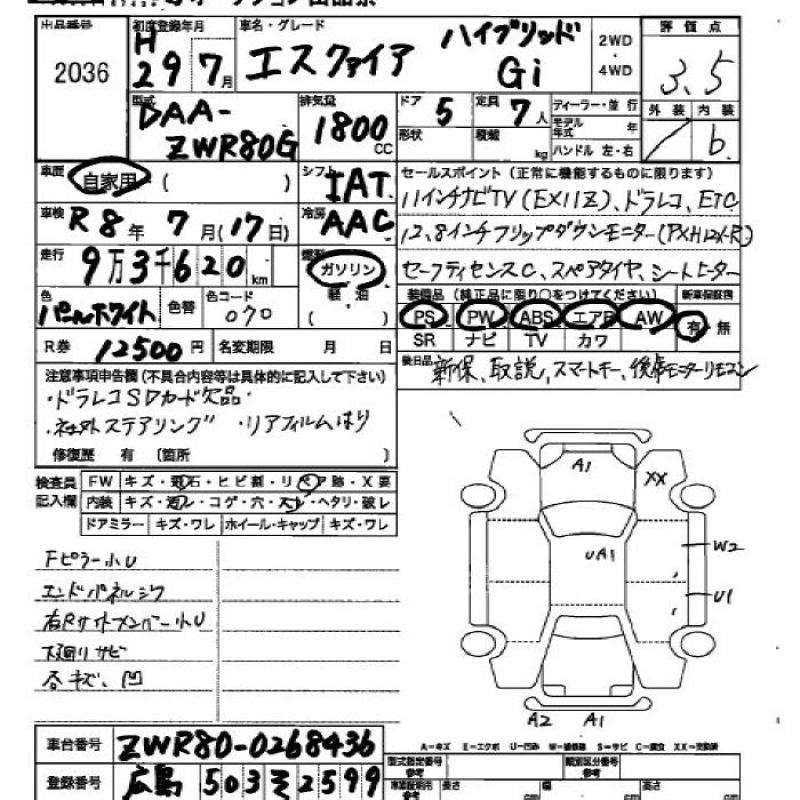 出品番号 初度登録年月 車名・グレード 評価点
2036 H 29 7月 エスクァイア ハイブリッド Gi 2WD・4WD 3.5
型式 DAA-ZWR80G 排気量 1800cc ドア 5 定員 7人 ディーラー・並行 外装 内装
形状 積載 kg モデル年式 年 ハンドル 左・右 b.
車歴 自家用・( ) シフト IAT セールスポイント(正常に機能するものに限ります)
11インチナビTV(EX11Z)、ドラレコ、ETC
車検 R8年7月(17日) 冷房 AAC 12.8インチフリップダウンモニター(PXH12X-R)
走行 9万3千620km 燃料 ガソリン セーフティセンスC、スペアタイヤ、シートヒーター
軽油 ( ) 装備品(純正品に限り○をつけてください) 新車保証書
色 パールホワイト 色替 色コード 070 PS PW ABS エアB AW 有・無
SR ナビ TV カワ
R券 12500円 名変期限 月 日
後日品 新保、取説、スマートキー、後席モニターリモコン
注意事項申告欄(不具合内容等は具体的に記入して下さい)
・ドラレコSDカード欠品
・社外ステアリング ・リアフィルムはり
修復歴 有(箇所 )
検査員記入欄 FW キズ・飛石・ヒビ割・リペア跡・X要
内装 キズ・汚レ・コゲ・穴・スレ・ヘタリ・破レ
ドアミラー キズ・ワレ ホイール・キャップ キズ・ワレ
Fピラー小U
エンドパネルシワ
右Rサイドメンバー小U
下廻りサビ
各キズ、凹
A1
XX
UA1
W2
U1
A2 A1
A-キズ E-エクボ U-凹み W-補修跡 S-サビ C-腐食 XX-交換済
車台番号 ZWR80-0268436
型式指定番号 参考 類別区分番号 参考
登録番号 広島 503 そ 2599
長さ cm 幅 cm 高さ cm